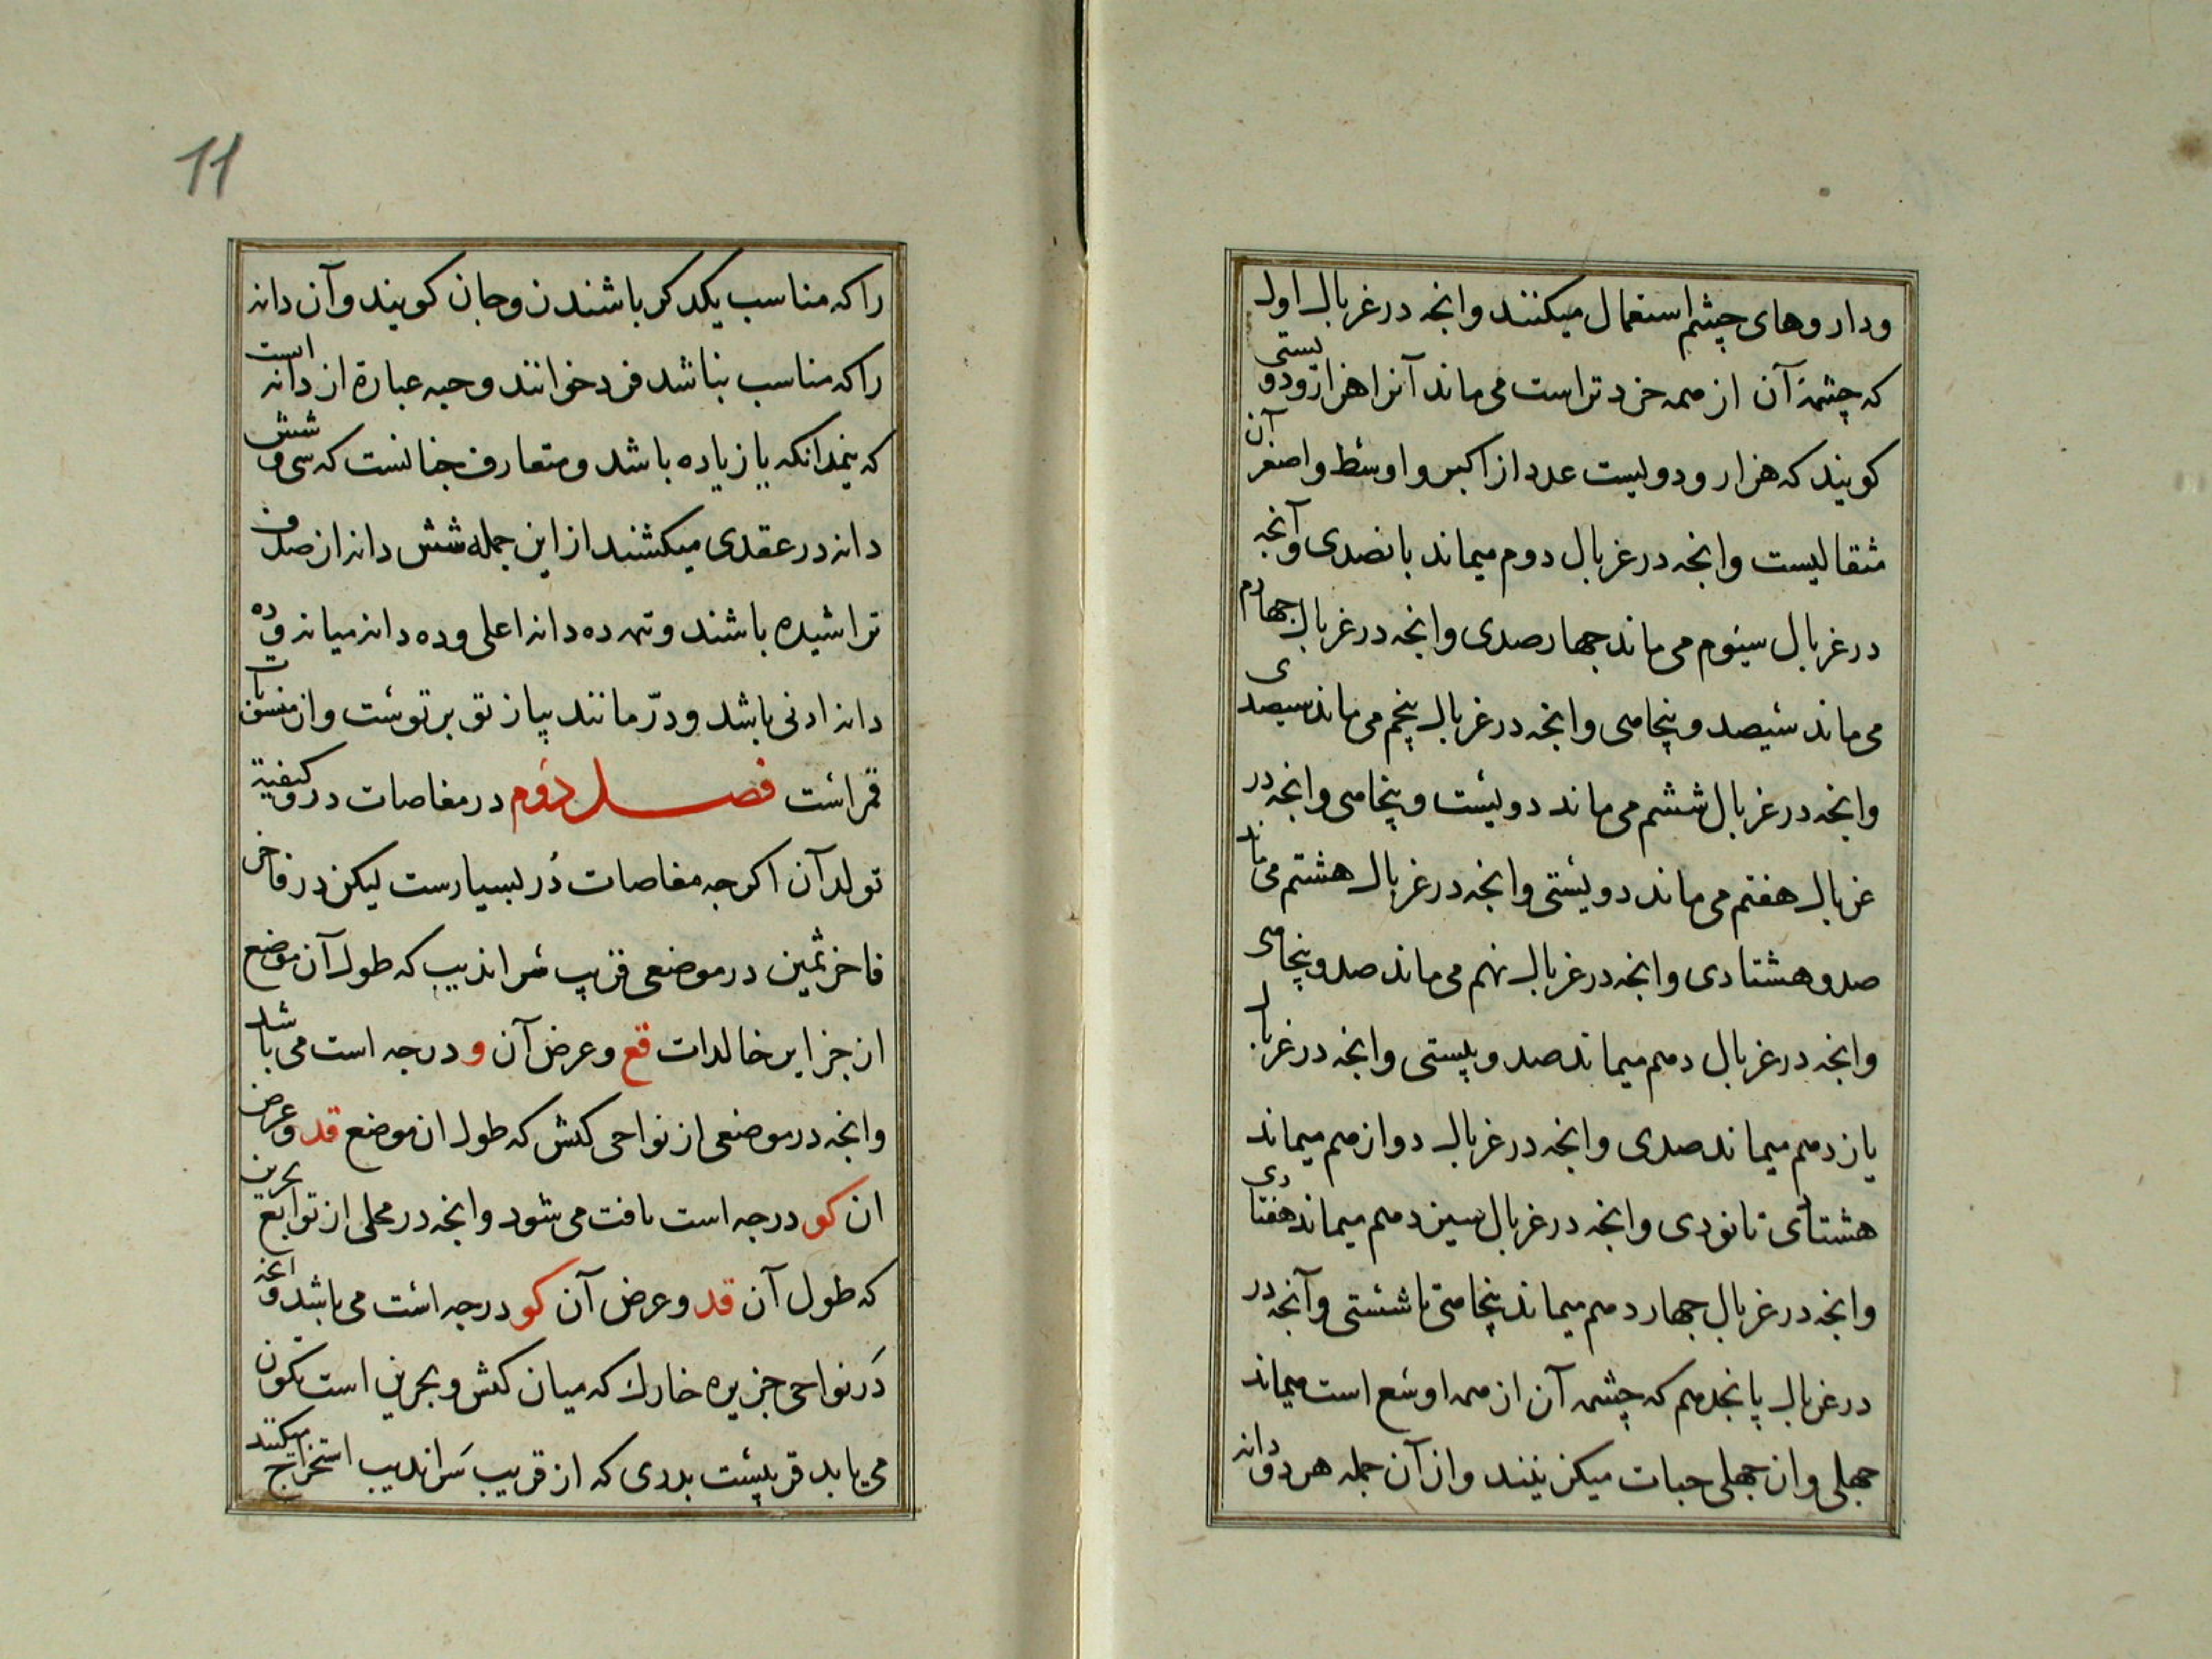 وداروهای چشم استعمال میکنند وانجه در غربال اول
که چشمهٔ آن از همه خردتر است می ماند آنرا هزار و دویستی
کویند که هزار و دویست عدد از اکبر و اوسط و اصغر آن
مثقالیست وانجه در غربال دوم میماند پانصدی وآنجه
در غربال سیوم می ماند جهارصدی وانجه در غربال جهارم
می ماند سیصد و پنجاهی وانجه در غربال پنجم می ماند سیصدی
وانجه در غربال ششم می ماند دویست و پنجاهی وانجه در
غربال هفتم می ماند دویستی وانجه در غربال هشتم می ماند
صد و هشتادی وانجه در غربال نهم می ماند صد و پنجاهی
وانجه در غربال دهم میماند صد و بیستی وانجه در غربال
یازدهم میماند صدی وانجه در غربال دوازهم میماند
هشتادی تا نودی وانجه در غربال سیزدهم میماند هفتادی
وانجه در غربال جهاردهم میماند پنجاهی تا شستی وآنجه در
در غربال پانجدهم که چشمه آن از همه اوسع است میماند
جهلی وان جهلی حبات میکزینند واز آن جمله هر دو دانه
11
را که مناسب یکدکر باشند زوجان کویند وآن دانه
را که مناسب نباشد فرد خوانند وحبه عبارة از دانه است
که نیمدانکه یا زیاده باشد ومتعارف جنانست که سی و شش
دانه در عقدی میکشند از این جمله شش دانه از صدف
تراشیده باشند وتمه ده دانه اعلی وده دانه میانه وده
دانه ادنی باشد ودرّ مانند پیاز تو بر توست وان منسوبات
قمر است فصل دوم در مغاصات در وکیفیة
تولد آن اکرجه مغاصات دُر بسیارست لیکن در فاخر
فاخر ثمین در موضعی قریب سراندیب که طول آن موضع
از جزایر خالدات قع وعرض آن و درجه است می باشد
وانجه در موضعی از نواحی کیش که طول ان موضع قد وعرض
ان کو درجه است یافت می شود وانجه در محلی از توابع بحرین
که طول آن قد وعرض آن کو درجه است می باشد وانجه
در نواحی جزیره خارك که میان کیش وبحرین است تکون
می یابد قریبست بدری که از قریب سراندیب استخراج میکنند